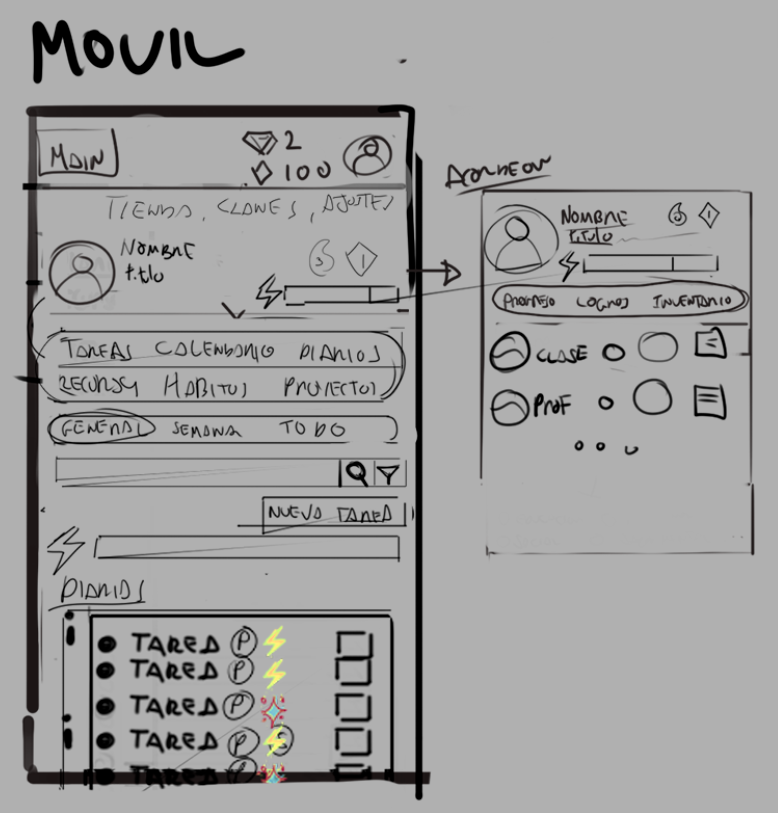 MOVIL
MAIN
2
100
TIENDA, CLANES, AJUSTES
NOMBRE
titulo
TAREAS CALENDARIO DIARIOS
RECURSOS HABITOS PROYECTOS
GENERAL SEMANA TO DO
NUEVO TAREA
DIARIOS
TAREA P
TAREA P
TAREA P
TAREA P S
TAREA P
ACORDEON
NOMBRE
titulo
PROGRESO LOGROS INVENTARIO
CLASE
PROF